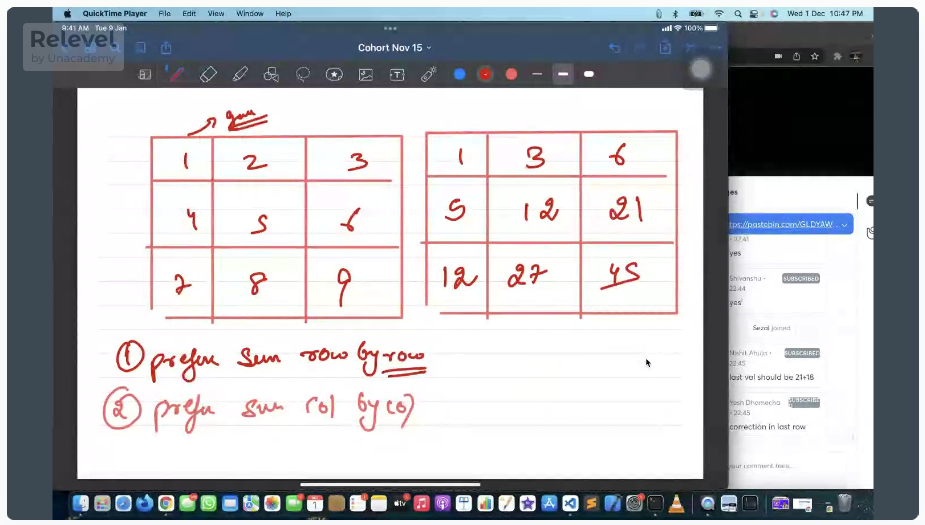 QuickTime Player File Edit View Window Help
Wed 1 Dec 10:47 PM
9:41 AM Tue 9 Jan
100%
Relevel
by Unacademy
Cohort Nov 15
1 2 3
4 5 6
7 8 9
1 3 6
5 12 21
12 27 45
① prefix sum row by row
② prefix sum col by col
ges
tps://pastebin.com/GLDYAW...
22:41
yes
Shivanshu •
SUBSCRIBED
22:44
yes'
Sezal joined
Nishit Ahuja •
SUBSCRIBED
22:45
last val should be 21+18
Yash Dhamecha
22:45
correction in last row
your comment here...